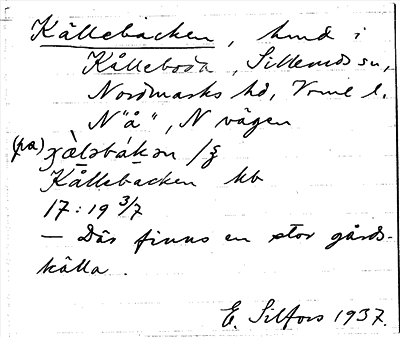 Källebacken, hmd i
Källeboda, Sillerud sn,
Nordmarks hd, Vrml l.
N "å", N vägen
(pa) χὰlsbákən /ξ
Källebacken hb
17:19 3/7
— Där finns en stor gårds-
källa.
E. Silfors 1937.